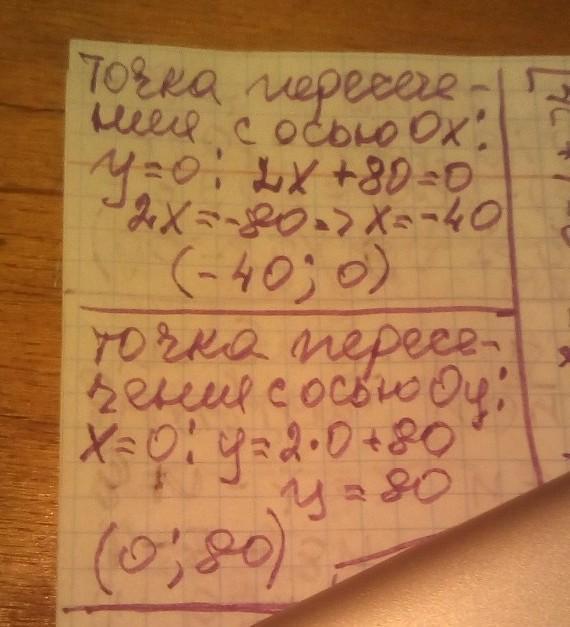 Точка пересече-
ния с осью Ox:
y=0: 2x+80=0
2x=-80 => x=-40
(-40; 0)
Точка пересе-
чения с осью Oy:
x=0: y=2·0+80
y=80
(0; 80)